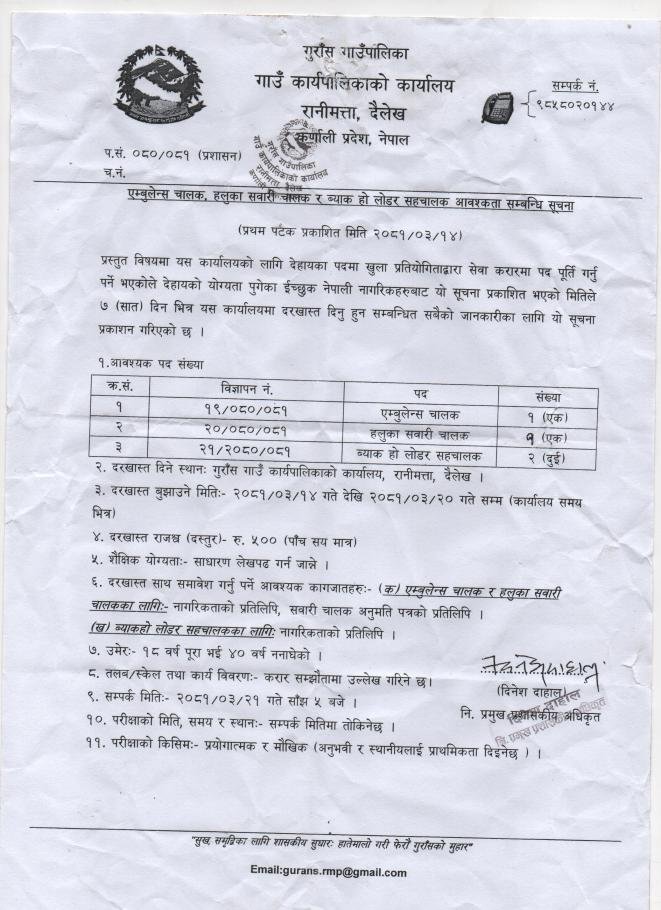 गुराँस गाउँपालिका
गाउँ कार्यपालिकाको कार्यालय
रानीमत्ता, दैलेख
कर्णाली प्रदेश, नेपाल
सम्पर्क नं.
९८५८०२०१४४
प.सं. ०८०/०८१ (प्रशासन)
च.नं.
गुराँस गाउँपालिका
गाउँ कार्यपालिकाको कार्यालय
रानीमत्ता, दैलेख
एम्बुलेन्स चालक, हलुका सवारी चालक र ब्याक हो लोडर सहचालक आवश्कता सम्बन्धि सूचना
(प्रथम पटक प्रकाशित मिति २०८१/०३/१४)
प्रस्तुत विषयमा यस कार्यालयको लागि देहायका पदमा खुला प्रतियोगिताद्वारा सेवा करारमा पद पूर्ति गर्नु
पर्ने भएकोले देहायको योग्यता पुगेका ईच्छुक नेपाली नागरिकहरुबाट यो सूचना प्रकाशित भएको मितिले
७ (सात) दिन भित्र यस कार्यालयमा दरखास्त दिनु हुन सम्बन्धित सबैको जानकारीका लागि यो सूचना
प्रकाशन गरिएको छ ।
१.आवश्यक पद संख्या
क्र.सं. विज्ञापन नं. पद संख्या
१ १९/०८०/०८१ एम्बुलेन्स चालक १ (एक)
२ २०/०८०/०८१ हलुका सवारी चालक १ (एक)
३ २१/२०८०/०८१ ब्याक हो लोडर सहचालक २ (दुई)
२. दरखास्त दिने स्थानः गुराँस गाउँ कार्यपालिकाको कार्यालय, रानीमत्ता, दैलेख ।
३. दरखास्त बुझाउने मितिः- २०८१/०३/१४ गते देखि २०८१/०३/२० गते सम्म (कार्यालय समय
भित्र)
४. दरखास्त राजश्व (दस्तुर)- रु. ५०० (पाँच सय मात्र)
५. शैक्षिक योग्यताः- साधारण लेखपढ गर्न जान्ने ।
६. दरखास्त साथ समावेश गर्नु पर्ने आवश्यक कागजातहरुः- (क) एम्बुलेन्स चालक र हलुका सवारी
चालकका लागिः- नागरिकताको प्रतिलिपि, सवारी चालक अनुमति पत्रको प्रतिलिपि ।
(ख) ब्याकहो लोडर सहचालकका लागिः नागरिकताको प्रतिलिपि ।
७. उमेरः- १८ वर्ष पूरा भई ४० वर्ष ननाघेको ।
८. तलब/स्केल तथा कार्य विवरणः- करार सम्झौतामा उल्लेख गरिने छ।
९. सम्पर्क मितिः- २०८१/०३/२१ गते साँझ ५ बजे ।
१०. परीक्षाको मिति, समय र स्थानः- सम्पर्क मितिमा तोकिनेछ ।
११. परीक्षाको किसिमः- प्रयोगात्मक र मौखिक (अनुभवी र स्थानीयलाई प्राथमिकता दिइनेछ ) ।
(दिनेश दाहाल)
नि. प्रमुख प्रशासकीय अधिकृत
दिनेश दाहाल
नि. प्रमुख प्रशासकीय अधिकृत
"सुख, समृद्धिका लागि शासकीय सुधारः हातेमालो गरी फेरौं गुराँसको मुहार"
Email:gurans.rmp@gmail.com